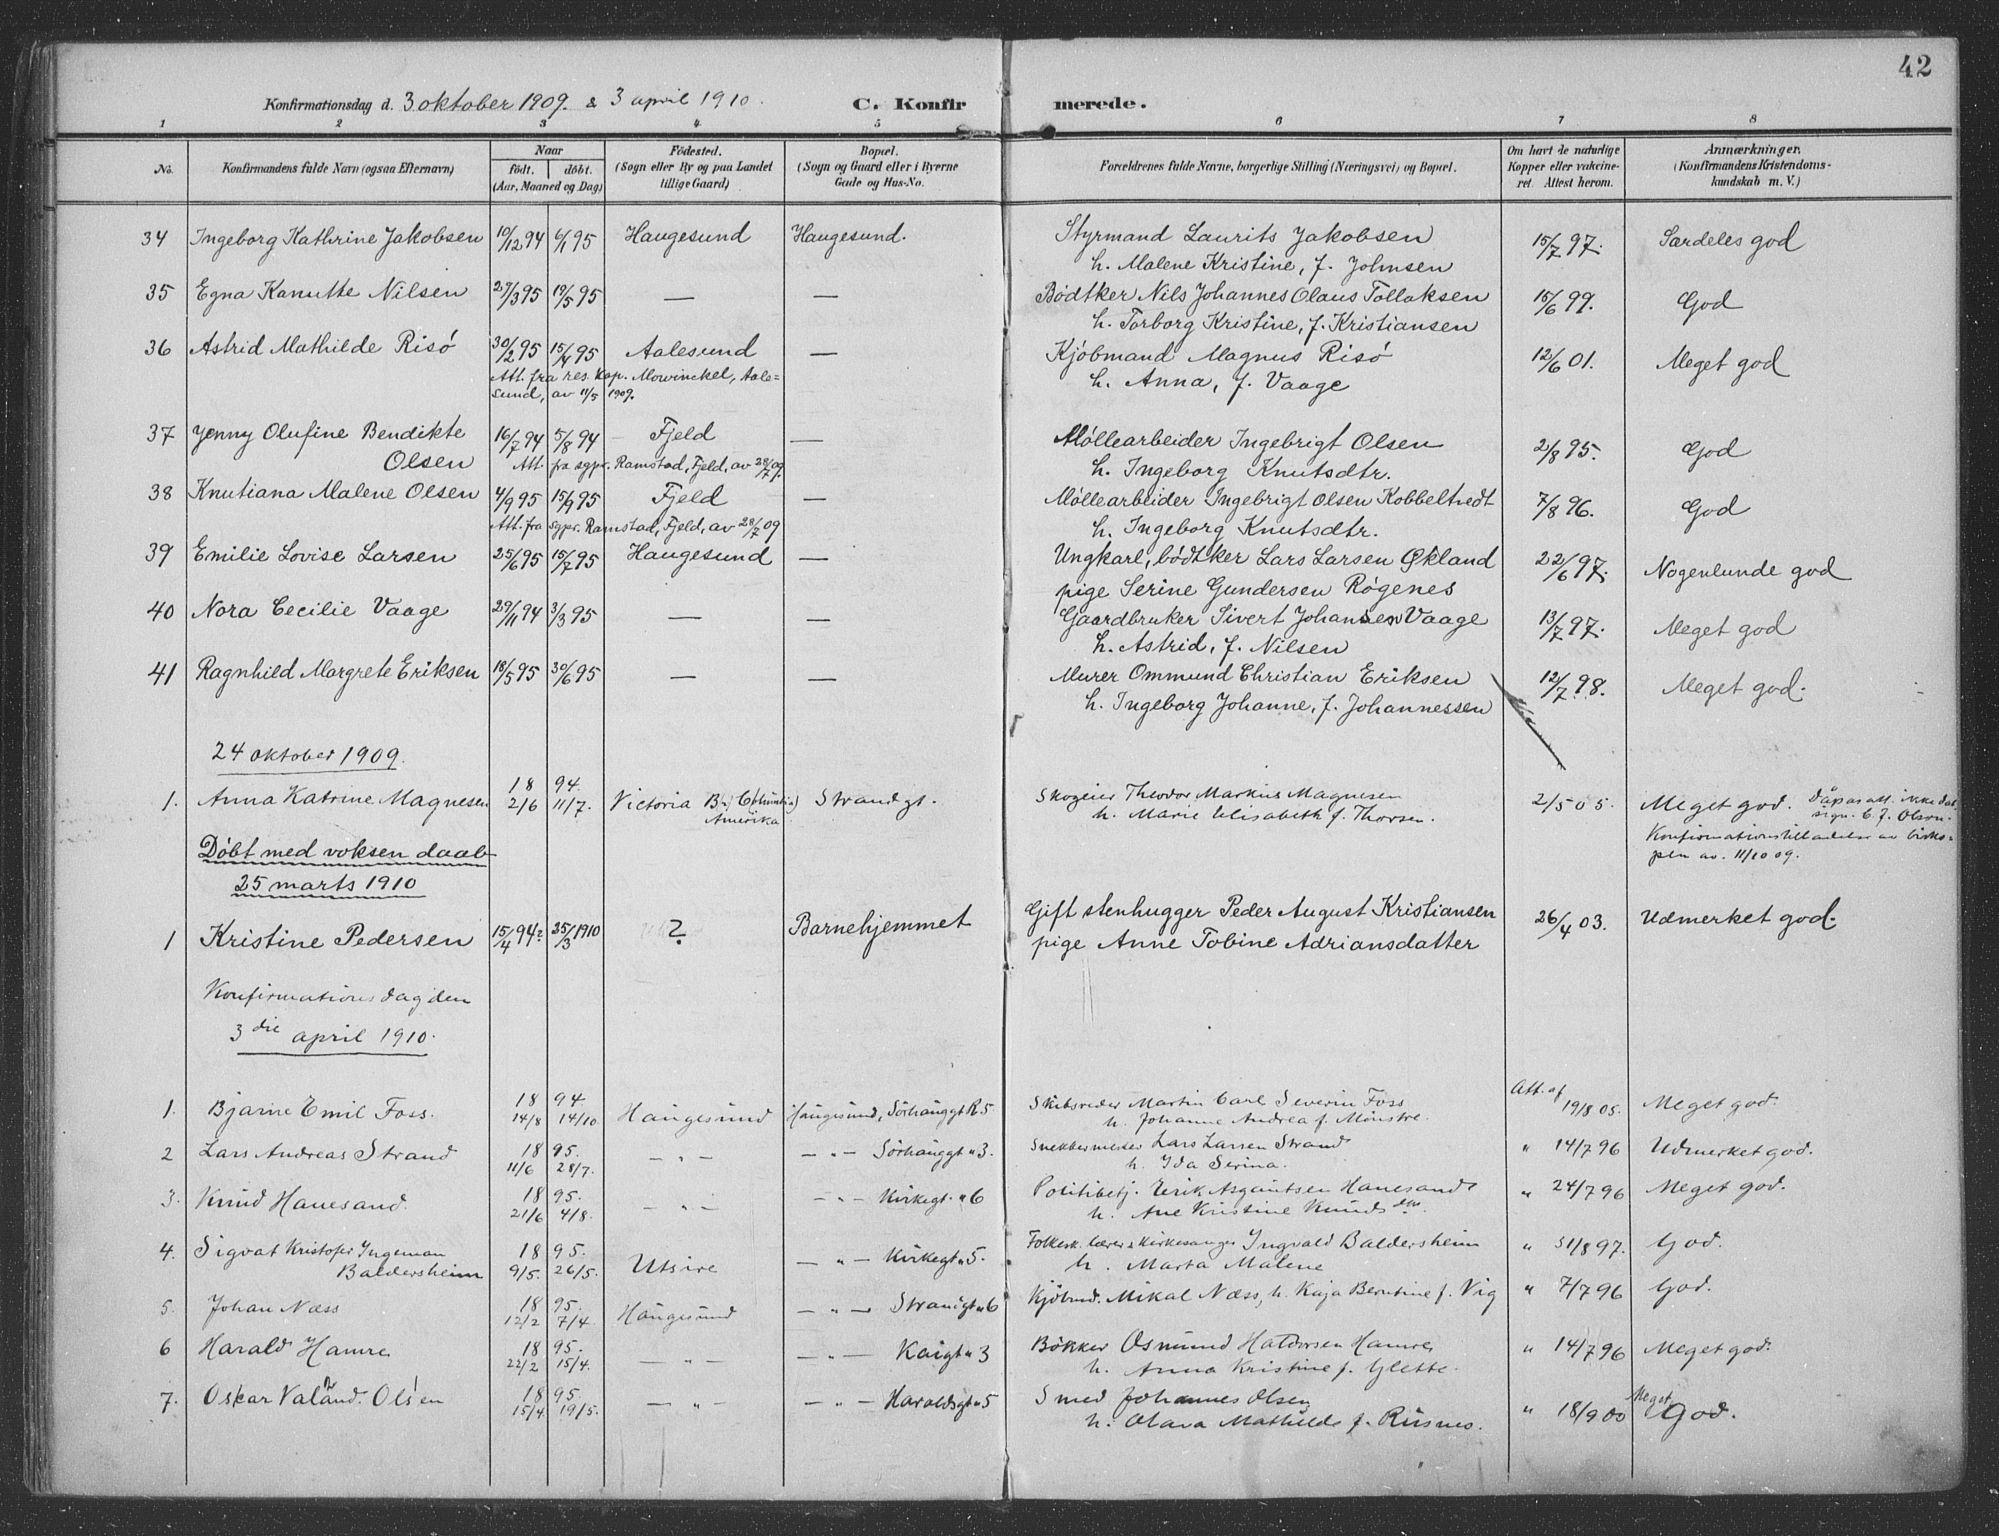 42
Konfirmationsdag d. 3 oktober 1909. & 3 april 1910. C. Konfirmerede.
1 2 3 4 5 6 7 8
No. Konfirmandens fulde Navn (ogsaa Efternavn) Naar født. døbt. (Aar, Maaned og Dag) Fødested. (Sogn eller By og paa Landet tillige Gaard) Bopæl. (Sogn og Gaard eller i Byerne Gade og Hus-No. Forældrenes fulde Navne, borgerlige Stilling (Næringsvei) og Bopæl. Om havt de naturlige Kopper eller vakcineret. Attest herom. Anmærkninger. (Konfirmandens Kristendomskundskab m. V.)
34 Ingeborg Kathrine Jakobsen 10/12 94 6/1 95 Haugesund Haugesund. Styrmand Laurits Jakobsen 15/7 97. Særdeles god
h. Malene Kristine, f. Johnsen
35 Egna Kanutte Nilsen 27/3 95 19/5 95 — — Bødtker Nils Johannes Olaus Tollaksen 15/6 99. God
h. Torborg Kristine, f. Kristiansen
36 Astrid Mathilde Risö 30/2 95 15/4 95 Aalesund — Kjöbmand Magnus Risö 12/6 01. Meget god
Att. fra res. kap. Mowinckel, Aale- h. Anna, f. Vaage
sund, av 11/5 1909.
37 Jenny Olufine Bendikte 16/7 94 5/8 94 — Fjeld — Møllearbeider Ingebrigt Olsen 2/8 95. God
Olsen Att. fra sgpr. Ramstad, Fjeld, av 28/7 09. h. Ingeborg Knutsdtr.
38 Knutiana Malene Olsen 4/9 95 15/9 95 Fjeld — Møllearbeider Ingebrigt Olsen Kobbeltvedt 7/8 96. God
Att. fra sgpr. Ramstad, Fjeld, av 28/7 09 h. Ingeborg Knutsdtr.
39 Emilie Lovise Larsen 25/6 95 15/7 95 Haugesund — Ungkarl, bødtker Lars Larsen Økland 22/6 97. Nogenlunde god
pige Serine Gundersen Røgenes
40 Nora Cecilie Vaage 29/11 94 3/3 95 — — Gaardbruker Sivert Johansen Vaage 13/7 97. Meget god
h. Astrid, f. Nilsen
41 Ragnhild Margrete Eriksen 18/5 95 30/6 95 — — Murer Ommund Christian Eriksen 12/7 98. Meget god.
h. Ingeborg Johanne, f. Johannessen
24 oktober 1909.
18 94.
1. Anna Katrine Magnesen 2/6 11/7. Victoria B. Columbia) Amerika Strandgt. Skogeier Theodor Markus Magnesen 2/5 05. Meget god. Dåpsatt. ikke dat.
h. Marie Elisabeth f. Thorsen. sign. C. J. Olson.
Døbt med voksen daab Konfirmationstilladelse av bisko-
25 marts 1910 pen av. 11/10 09.
1 Kristine Pedersen 15/4 94? 25/3 1910 ? Barnehjemmet Gift stenhugger Peder August Kristiansen 26/4 03. Udmerket god.
pige Anne Tobine Adriansdatter
Konfirmationsdag den
3die april 1910.
18 94. Att. af
1. Bjarne Emil Foss. 14/8 14/10 Haugesund Haugesund, Sörhauggt R. 5 Skibsreder Martin Carl Severin Foss 19/8 05. Meget god.
h. Johanne Andrea f. Mönstre.
18 95.
2 Lars Andreas Strand 11/6 28/7. — „ — — „ — Sörhauggt „ 3. Snekkermester Lars Larsen Strand „ 14/7 96 Udmerket god.
h. Ida Serina.
18 95.
3. Knud Hanesand. 21/6 4/8. — „ — — „ — Kirkegt. „ 6 Politibetj. Eerik Asgautsen Hanesand „ 24/7 96 Meget god.
h. Ane Kristine Knudsdtr.
4. Sigvat Kristofer Ingeman 18 95. Folkesk. lærer & Kirkesanger Ingvald Baldersheim „ 31/8 97. God.
Baldersheim 9/5. 26/5. Utsire — „ — Kirkegt „ 5. h. Marta Malene
18 95.
5. Johan Næss 12/2 7/4. Haugesund — „ — Strandgt „ 6 Kjöbmd. Mikal Næss, h. Kaja Berntine f. Vig „ 7/7 96 God.
18 95.
6 Harald Hamre 22/2 15/4. — „ — — „ — Kaigt „ 3 Bökker Osmund Haldorsen Hamre „ 14/7 96 Meget god.
h. Anna Kristine f. Glette.
18 95.
7. Oskar Valand. Olsen 15/4. 19/5. — „ — — „ — Haraldsgt „ 5 Smed Johannes Olsen „ 18/9 00 Meget God.
h. Olava Mathilde f. Risnes.